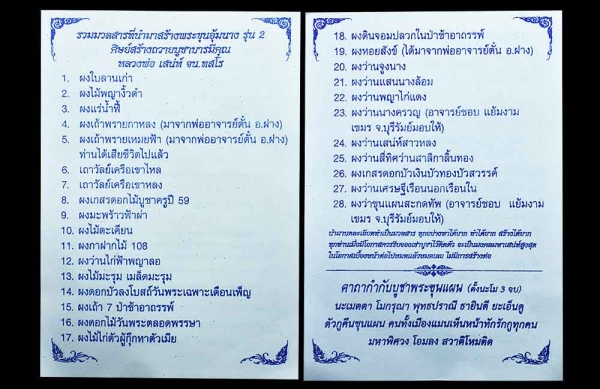 รวมมวลสารที่นำมาสร้างพระขุนอุ้มนาง รุ่น 2
ศิษย์สร้างถวายบูชาบารมีคุณ
หลวงพ่อ เสน่ห์ จน.ทสโร
1. ผงใบลานเก่า
2. ผงไม้พญางิ้วดำ
3. ผงแร่น้ำพี้
4. ผงเถ้าพรายกาหลง (มาจากพ่ออาจารย์ตั๋น อ.ฝาง)
5. ผงเถ้าพรายเหมยฟ้า (มาจากพ่ออาจารย์ตั๋น อ.ฝาง)
ท่านได้เสียชีวิตไปแล้ว
6. เถาวัลย์เครือเขาไหล
7. เถาวัลย์เครือเขาหลง
8. ผงเกสรดอกไม้บูชาครูปี 59
9. ผงมะพร้าวฟ้าผ่า
10. ผงไม้ตะเคียน
11. ผงกาฝากไม้ 108
12. ผงว่านไก่ฟ้าพญาลอ
13. ผงไม้มะรุม เมล็ดมะรุม
14. ผงดอกบัวลงโบสถ์วันพระเฉพาะเดือนเพ็ญ
15. ผงเถ้า 7 ป่าช้าอาถรรพ์
16. ผงดอกไม้วันพระตลอดพรรษา
17. ผงไม้ไก่ตัวผู้กุ๊กหาตัวเมีย
18. ผงดินจอมปลวกในป่าช้าอาถรรพ์
19. ผงหอยสังข์ (ได้มาจากพ่ออาจารย์ตั๋น อ.ฝาง)
20. ผงว่านจูงนาง
21. ผงว่านแสนนางล้อม
22. ผงว่านพญาไก่แดง
23. ผงว่านนางครวญ (อาจารย์ชอบ แย้มงาม
เขมร จ.บุรีรัมย์มอบให้)
24. ผงว่านเสน่ห์สาวหลง
25. ผงว่านสี่ทิศว่านสาลิกาลิ้นทอง
26. ผงเกสรดอกบัวเงินบัวทองบัวสวรรค์
27. ผงว่านเศรษฐีเรือนนอกเรือนใน
28. ผงว่านขุนแผนสะกดทัพ (อาจารย์ชอบ แย้มงาม
เขมร จ.บุรีรัมย์มอบให้)
นำมาบดละเอียดทำเป็นมวลสาร ทุกอย่างหาได้ยาก ทำได้ยาก สร้างได้ยาก
ทุกท่านเมื่อมีโอกาสควรรีบจองเช่าบูชาไว้ติดตัว จะเป็นมงคลมหาเสน่ห์สูงสุด
ในโอกาสเบื้องหน้าต่อไปหมดแล้วหมดเลย ไม่มีการสร้างต่อ
คาถากำกับบูชาพระขุนแผน (ตั้งนะโม 3 จบ)
นะเมตตา โมกรุณา พุทธปราณี ธายินดี ยะเอ็นดู
ตัวกูคืนขุนแผน คนทั้งเมืองแมนเห็นหน้าทักรักกูทุกคน
มหาพิศวง โอมลง สวาตีโหมติด